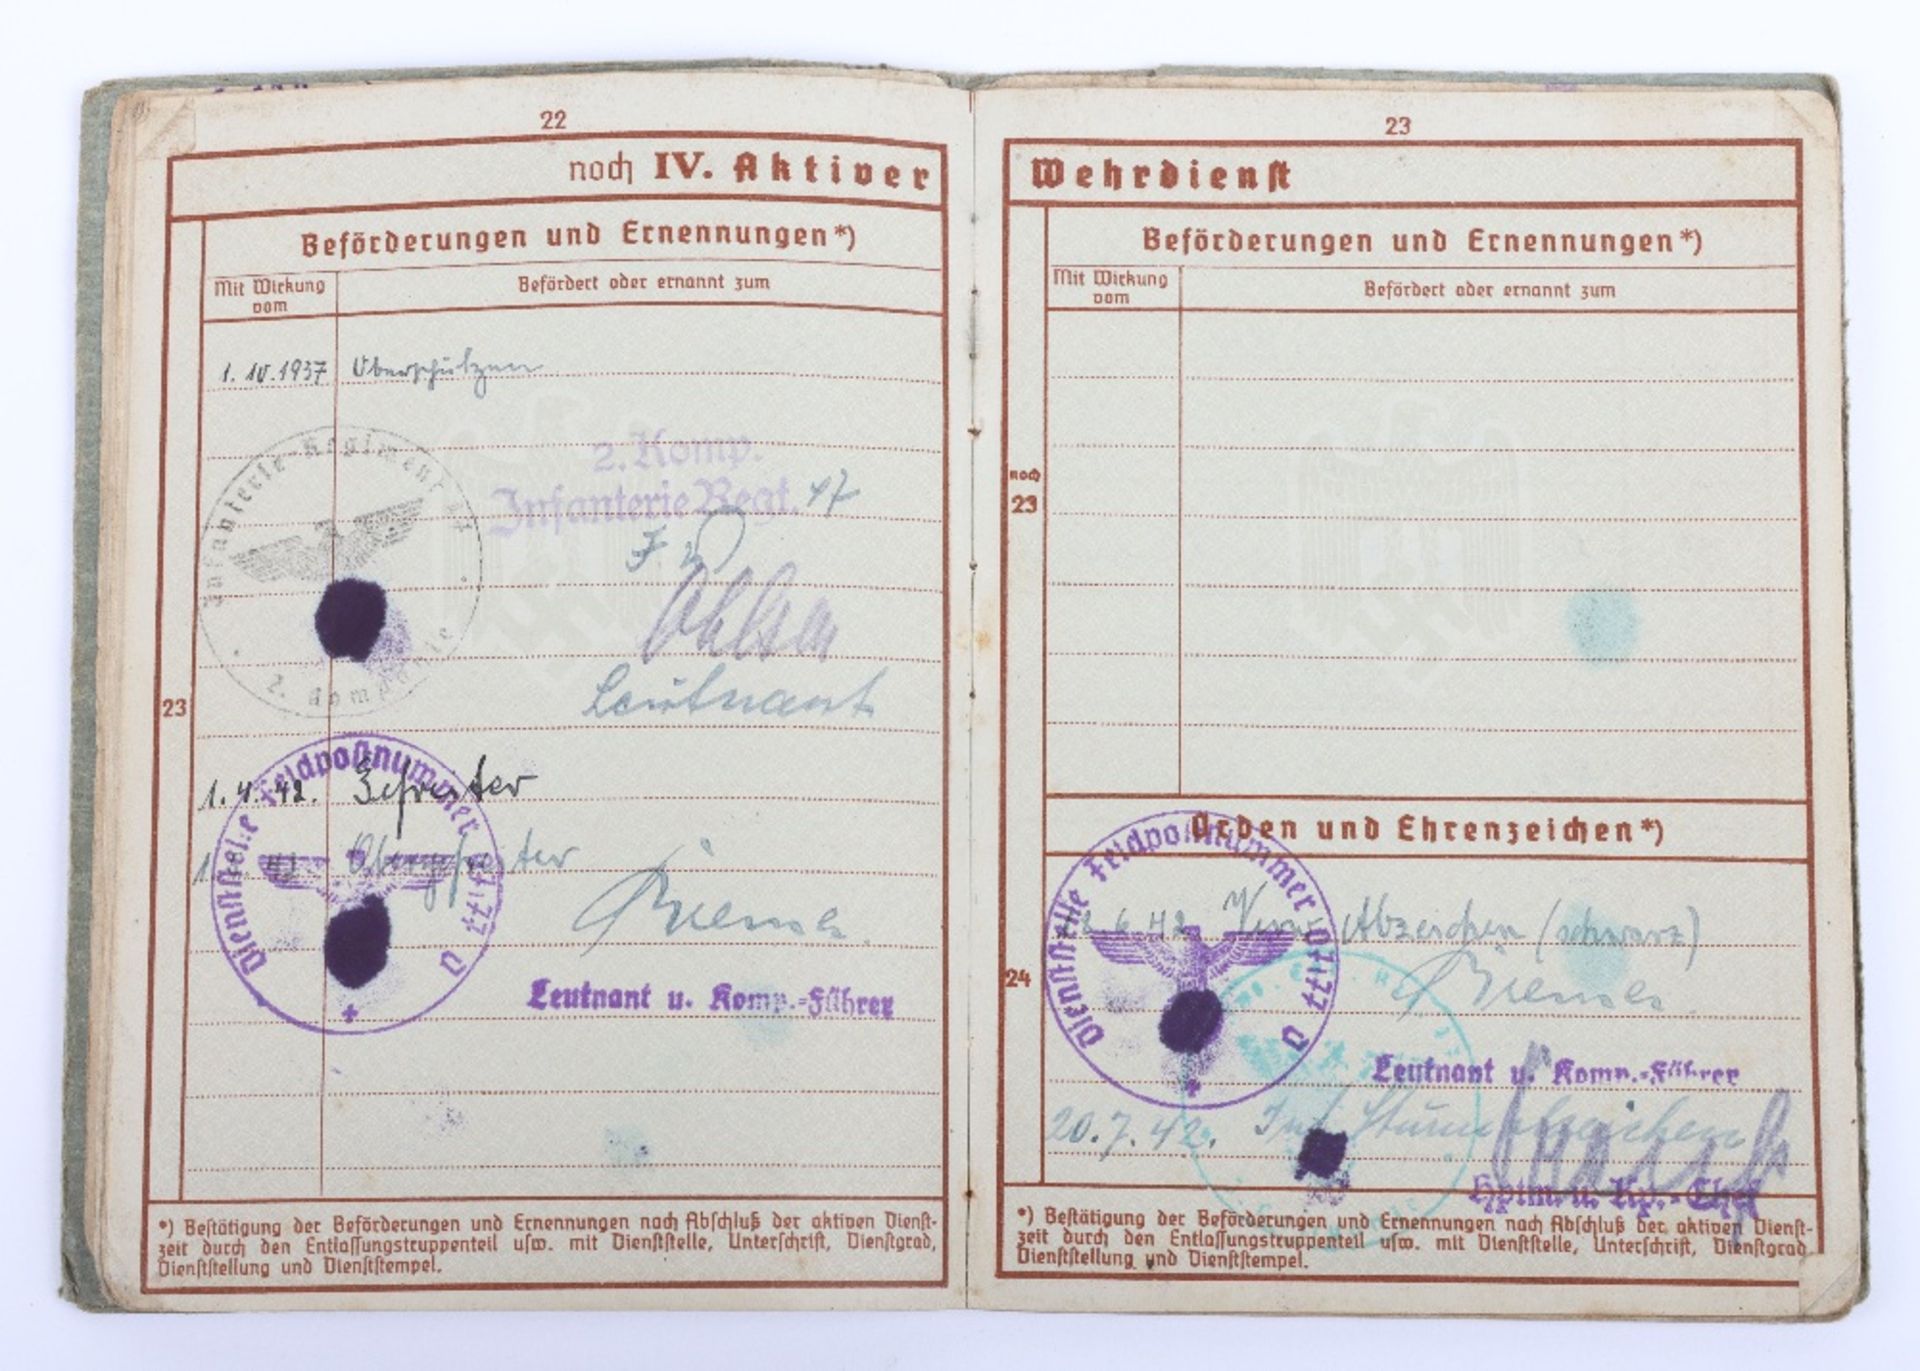 22
noch IV. Aktiver
Beförderungen und Ernennungen*)
Mit Wirkung
vom
Befördert oder ernannt zum
1.10.1937 Oberschützen
Infanterie-Regiment 47
2. Kompanie
2. Komp.
Infanterie Regt. 47
Leutnant
23
1.4.42. Gefreiter
Obergefreiter
Dienststelle Feldpostnummer 07177 D
Leutnant u. Komp.-Führer
*) Bestätigung der Beförderungen und Ernennungen nach Abschluß der aktiven Dienst-
zeit durch den Entlassungstruppenteil usw. mit Dienststelle, Unterschrift, Dienstgrad,
Dienststellung und Dienststempel.
23
Wehrdienst
Beförderungen und Ernennungen*)
Mit Wirkung
vom
Befördert oder ernannt zum
noch
23
Orden und Ehrenzeichen*)
24
Verw. Abzeichen (schwarz)
Dienststelle Feldpostnummer 07177 D
Leutnant u. Komp.-Führer
20.7.42. Inf. Sturmabzeichen
Hptm. u. Kp.-Chef
*) Bestätigung der Beförderungen und Ernennungen nach Abschluß der aktiven Dienst-
zeit durch den Entlassungstruppenteil usw. mit Dienststelle, Unterschrift, Dienstgrad
Dienststellung und Dienststempel.